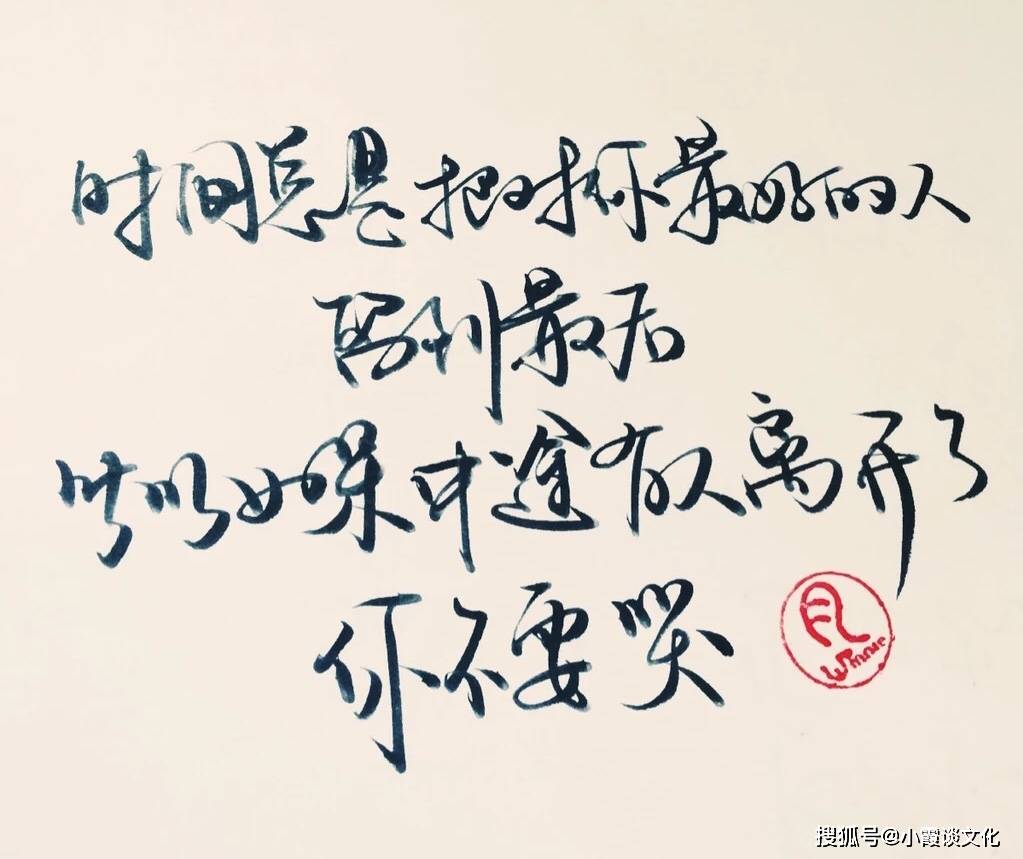 时间总是把对你最好的人
留到最后
所以如果中途有人离开了
你不要哭
Winner
搜狐号@小霞谈文化